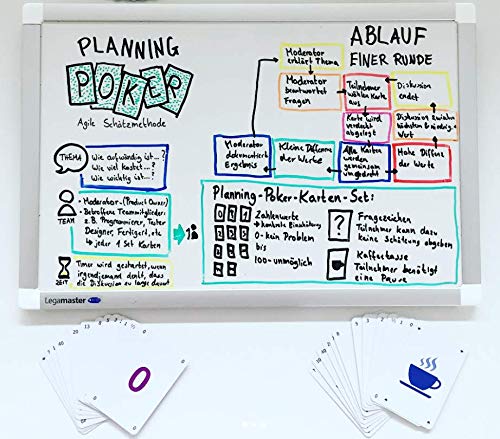 PLANNING
POKER
Agile Schätzmethode
THEMA
Wie aufwändig ist...?
Wie viel kostet...?
Wie wichtig ist...?
TEAM
- Moderator (Product Owner)
- Betroffene Teammitglieder:
z.B. Programmierer, Tester
Designer, Fertiger, etc
→ jeder 1 Set Karten
ZEIT
Timer wird gestartet, wenn
irgendjemand denkt, dass
die Diskussion zu lange dauert
ABLAUF
EINER RUNDE
Moderator
erklärt Thema
Moderator
beantwortet
Fragen
Teilnehmer
wählen Karte
aus
Karte wird
verdeckt
abgelegt
Alle Karten
werden
gemeinsam
umgedreht
Kleine Differenz
der Werte
Moderator
dokumentiert
Ergebnis
Hohe Differenz
der Werte
Diskussion zwischen
höchsten & niedrig.
Wert
Diskussion
endet
Planning-Poker-Karten-Set:
Zahlenwerte
0 = kein Problem
bis
100 = unmöglich
?
Fragezeichen
Teilnehmer kann dazu
keine Schätzung abgeben
Kaffeetasse
Teilnehmer benötigt
eine Pause
Legamaster
0